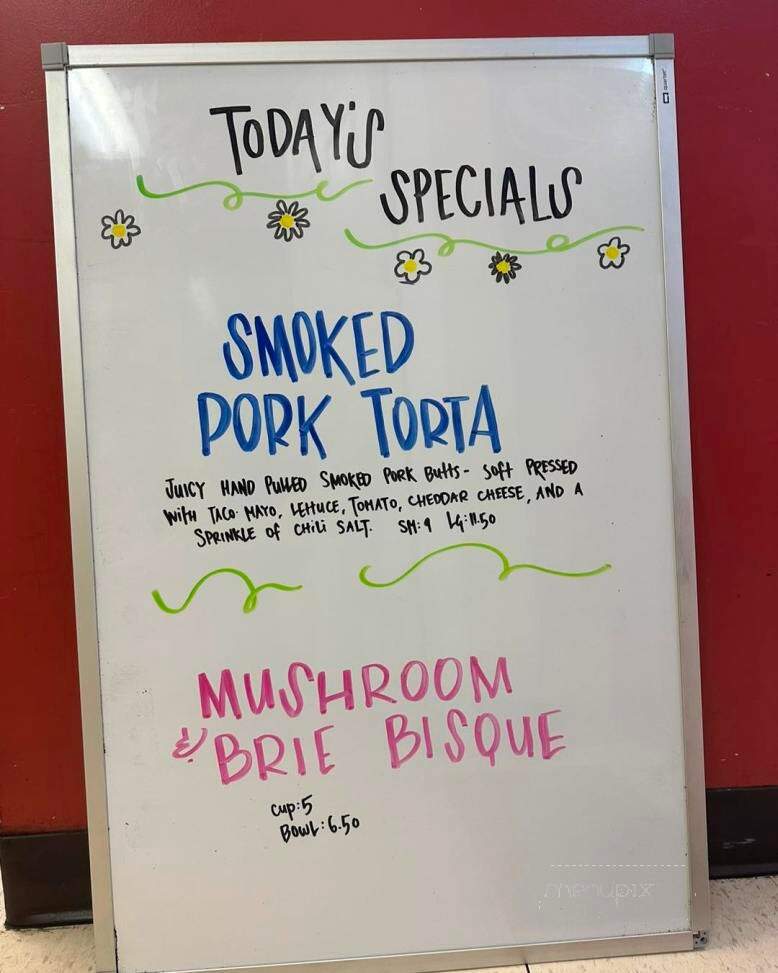 TODAY'S
SPECIALS
SMOKED
PORK TORTA
JUICY HAND PULLED SMOKED PORK BUTTS - SOFT PRESSED
WITH TACO MAYO, LETTUCE, TOMATO, CHEDDAR CHEESE, AND A
SPRINKLE OF CHILI SALT. SM: 9 LG: 11.50
MUSHROOM
& BRIE BISQUE
CUP: 5
BOWL: 6.50
menupix
Quartet